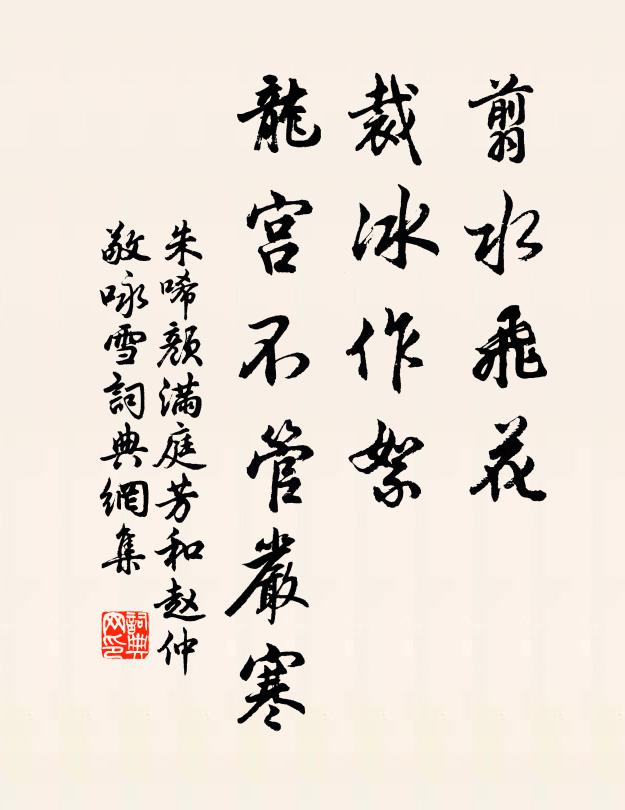 翦水飛花
裁冰作絮
龍宮不管嚴寒
朱唏顏滿庭芳和赵仲
敬咏雪詞典網集
詞典网印